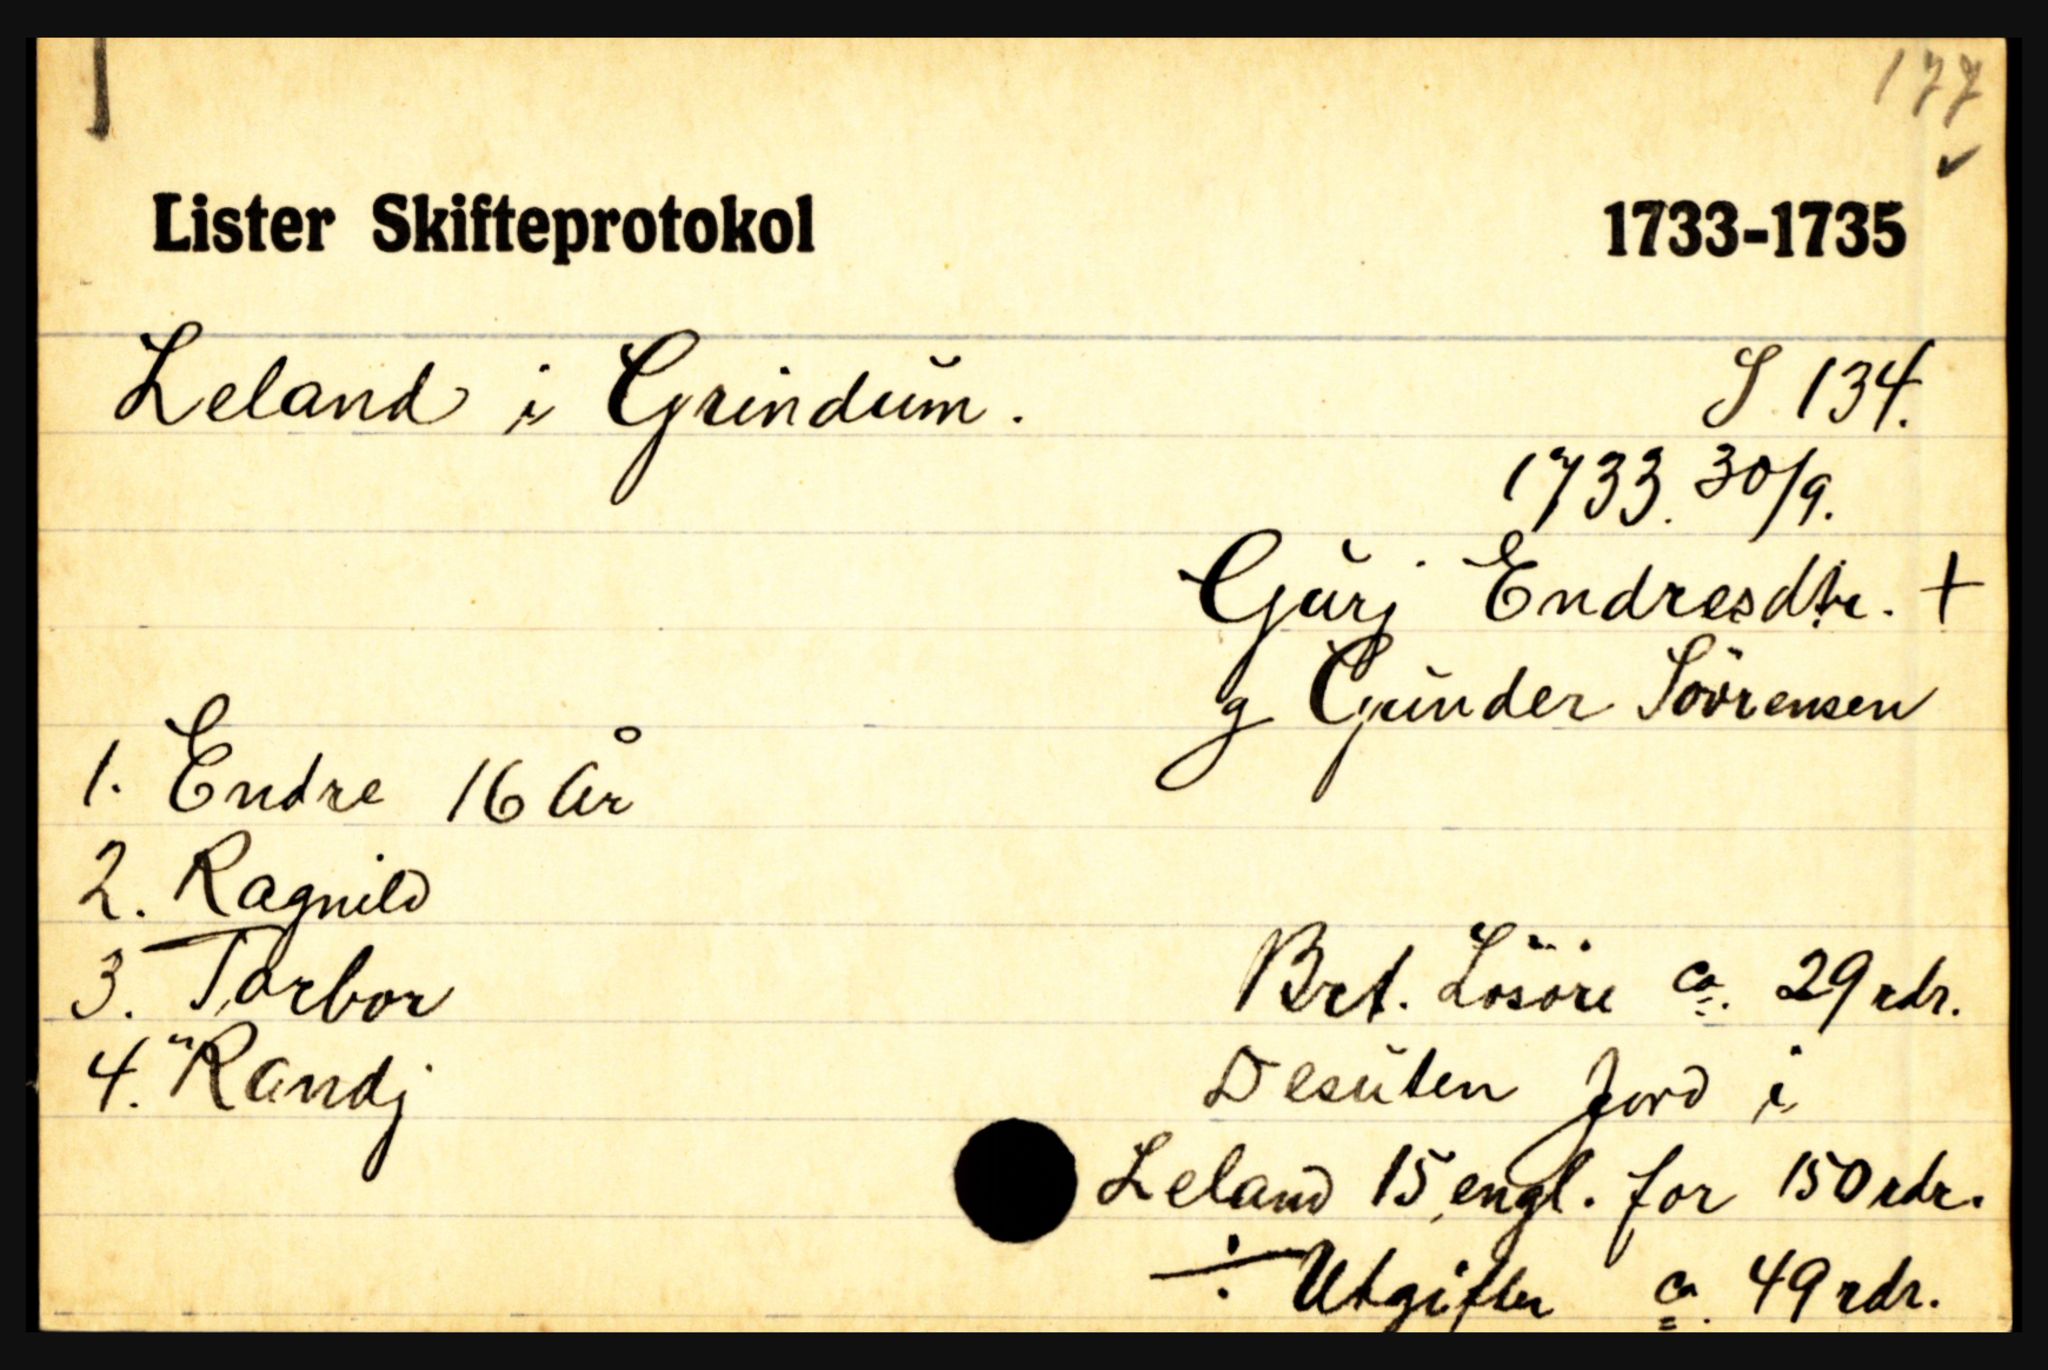 177
Lister Skifteprotokol 1733-1735
Leland i Grindum. S 134.
1733. 30/9.
Gurj Endresdtr. +
g Gunder Sörensen
1. Endre 16 År
2. Ragnild
3. Torbor
4. Randj
Brt. Lösöre ca. 29 rdr.
Desuten Jord i
Leland 15 engl. for 150 rdr.
÷ Utgifter ca. 49 rdr.